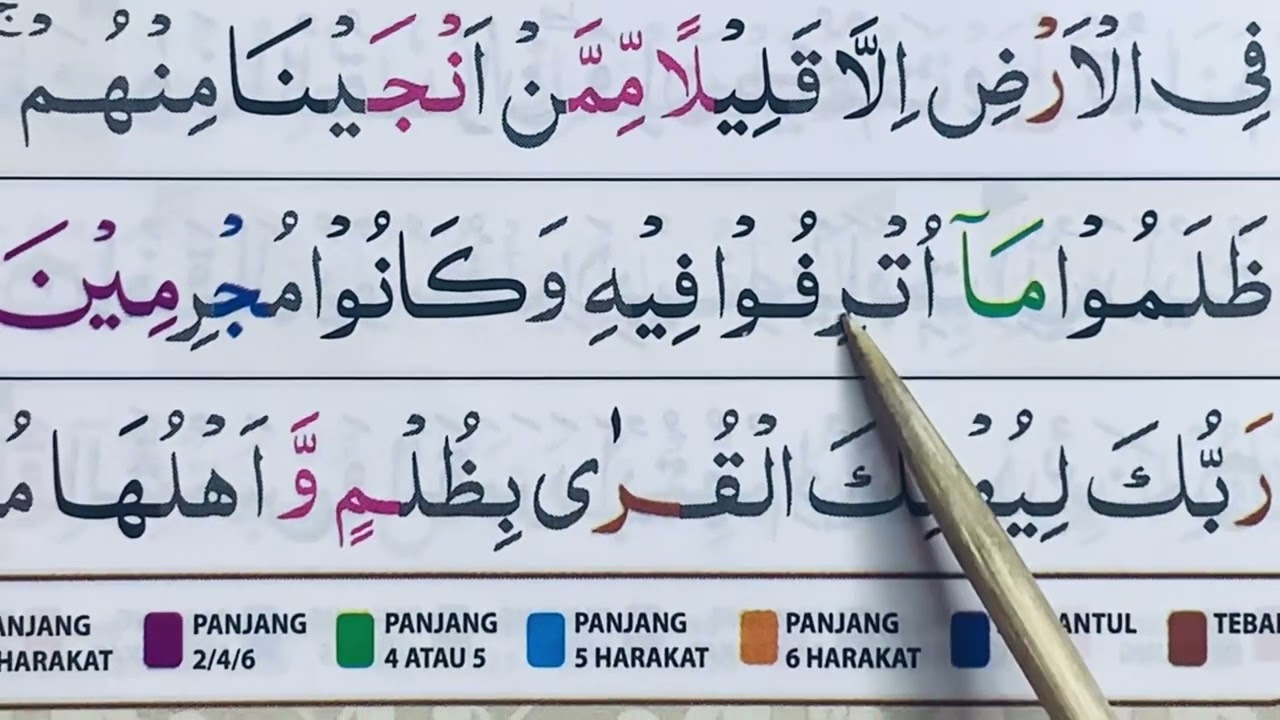 فِى الْاَرْضِ اِلَّا قَلِيْلًا مِّمَّنْ اَنْجَيْنَا مِنْهُمْ ۚ
ظَلَمُوْا مَآ اُتْرِفُوْا فِيْهِ وَكَانُوْا مُجْرِمِيْنَ
رَبُّكَ لِيُهْلِكَ الْقُرٰى بِظُلْمٍ وَّاَهْلُهَا
ANJANG HARAKAT PANJANG 2/4/6 PANJANG 4 ATAU 5 PANJANG 5 HARAKAT PANJANG 6 HARAKAT ANTUL TEBA